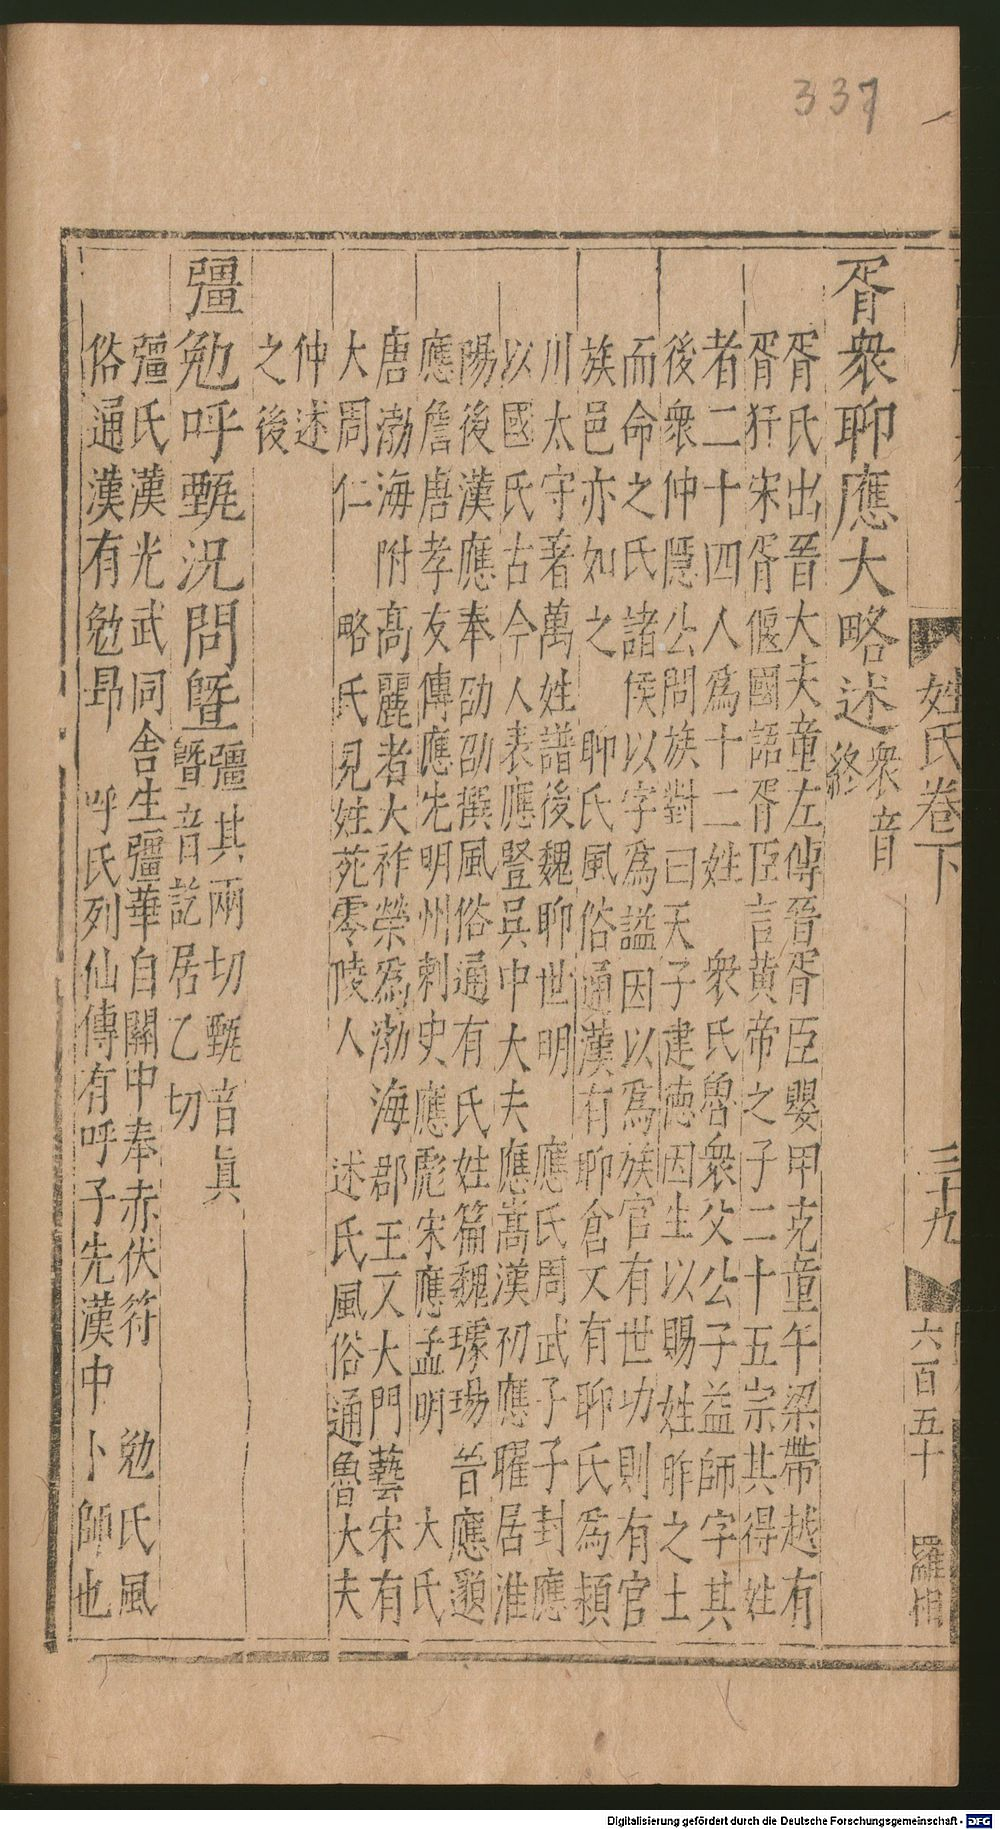 337
姓氏卷下
三十九
六百五十
羅相
胥衆聊應大略述衆音
終
胥氏出晉大夫童左傳晉胥臣嬰甲克童午梁帶越有
胥犴宋胥偃國語胥臣言黃帝之子二十五宗其得姓
者二十四人爲十二姓 衆氏魯衆父公子益師字其
後衆仲隱公問族對曰天子建德因生以賜姓胙之土
而命之氏諸侯以字爲謚因以爲族官有世功則有官
族邑亦如之 聊氏風俗通漢有聊倉又有聊氏爲潁
川太守著萬姓譜後魏聊世明 應氏周武子子封應
以國氏古今人表應豎吳中大夫應嵩漢初應曜居淮
陽後漢應奉劭劭撰風俗通有氏姓篇魏璩瑒 晉應顗
應詹唐孝友傳應先明州刺史應彪宋應孟明 大氏
唐渤海附高麗者大祚榮爲渤海郡王又大門藝宋有
大周仁 略氏見姓苑零陵人 述氏風俗通魯大夫
仲述
之後
彊勉呼甄況問暨彊其兩切甄音眞
暨音訖居乙切
彊氏漢光武同舍生彊華自關中奉赤伏符 勉氏風
俗通漢有勉昂 呼氏列仙傳有呼子先漢中卜師也
Digitalisierung gefördert durch die Deutsche Forschungsgemeinschaft - DFG